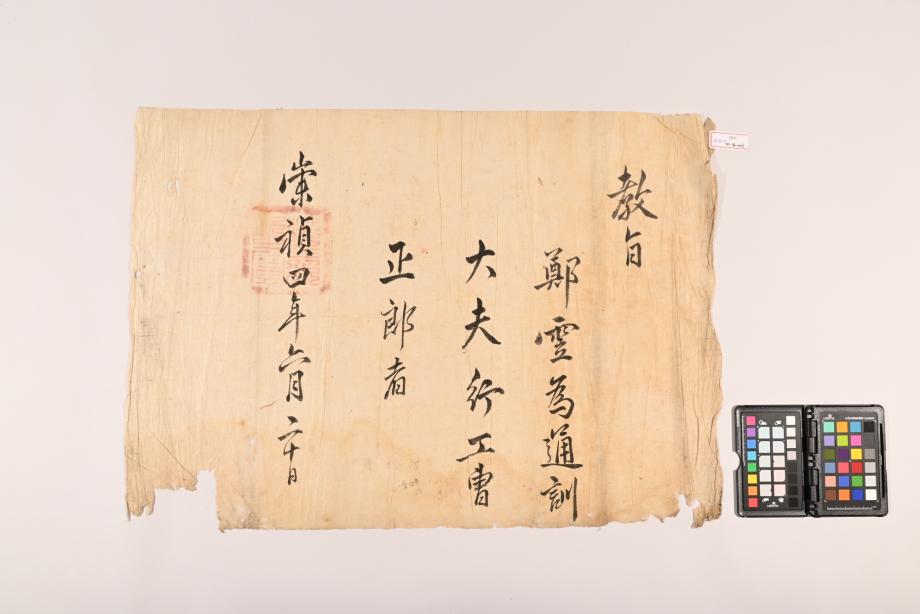 教旨
鄭雲為通訓
大夫行工曹
正郎者
崇禎四年六月二十日